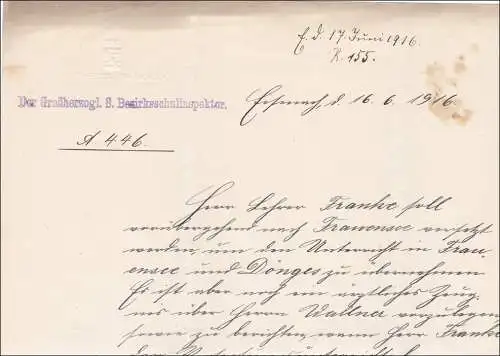 E. d. 17. Juni 1916.
K. 155.
Der Großherzogl. S. Bezirksschulinspektor.
Eisenach, d. 16. 6. 1916.
A 446.
Herr Lehrer Franke soll
vorübergehend nach Frauensee versetzt
werden, um den Unterricht in Frau
ensee und Dönges zu übernehmen
Es ist aber noch ein ärztliches Zeug
nis über Herrn Wallner vorzulegen
sowie zu berichten, wann Herr Franke
den